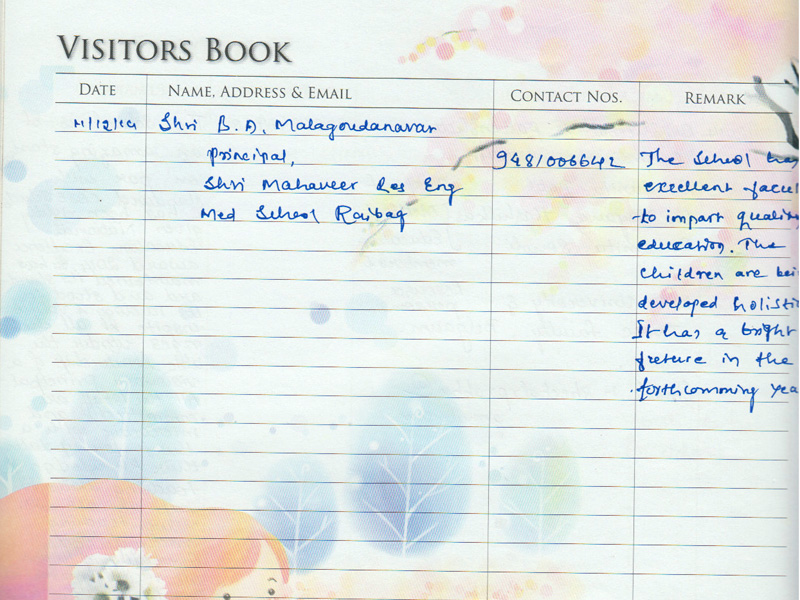 VISITORS BOOK
DATE NAME, ADDRESS & EMAIL CONTACT NOS. REMARK
11/12/19 Shri B. A. Malagoudanavar
Principal, 9481006642 The School has
Shri Mahaveer Res Eng excellent facul
Med School Raibag to impart quality
education. The
Children are bei
developed holisti
It has a bright
freture in the
forthcomming yea